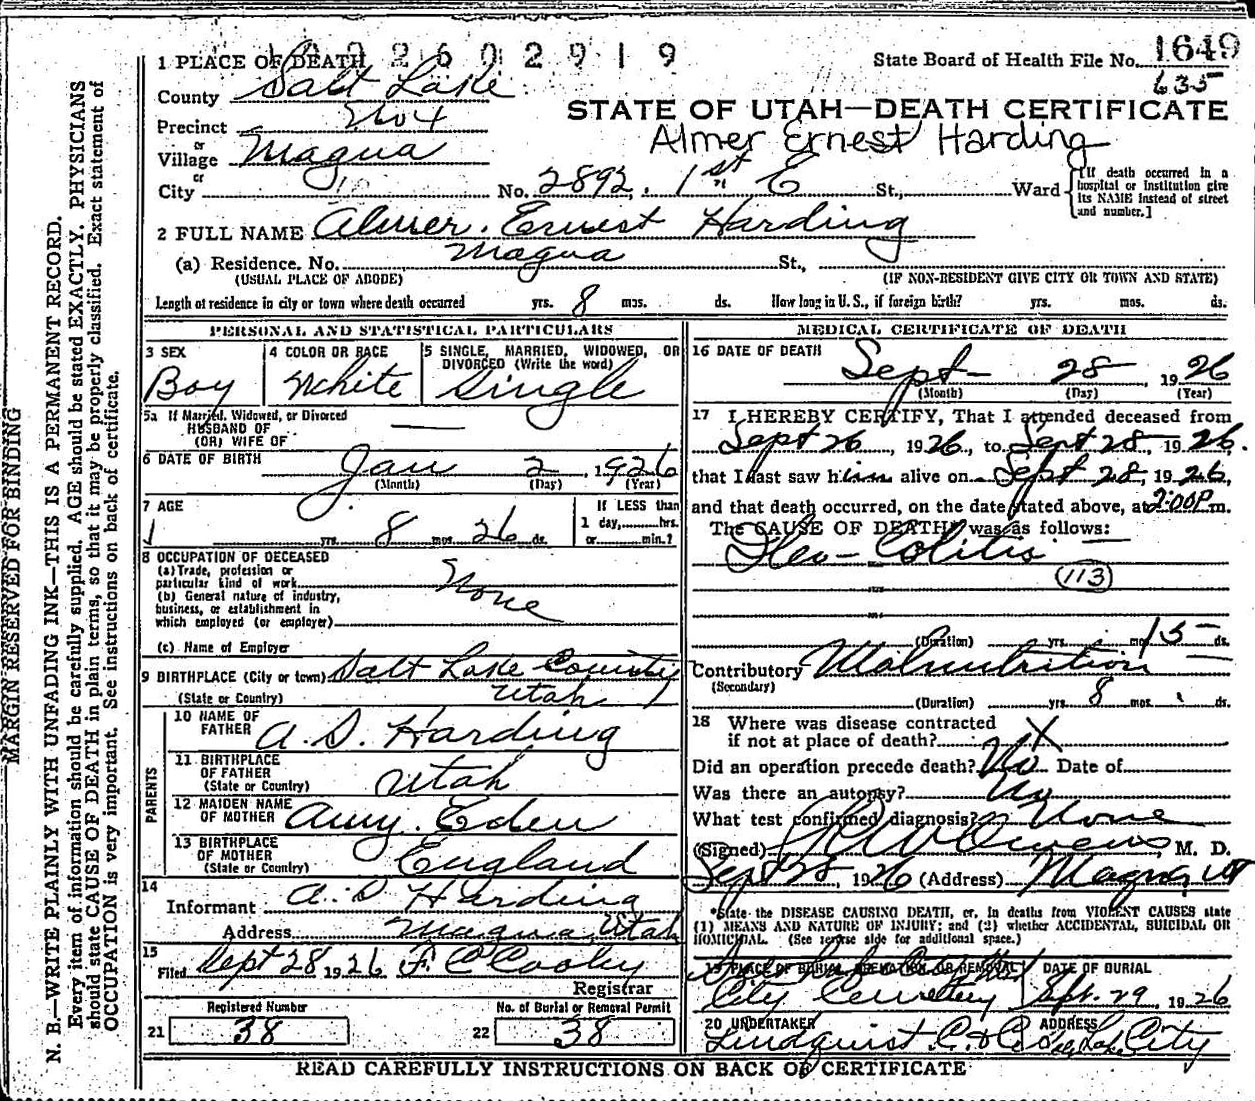 1 PLACE OF DEATH 2 6 0 2 9 1 9
State Board of Health File No. 1649
635
County Salt Lake
STATE OF UTAH—DEATH CERTIFICATE
Precinct No 4
Almer Ernest Harding
or
Village Magna
or
City No. 2892. 1st E St., Ward
[If death occurred in a hospital or institution give its NAME instead of street and number.]
2 FULL NAME Almer. Ernest Harding
(a) Residence. No. Magna St.,
(USUAL PLACE OF ABODE) (IF NON-RESIDENT GIVE CITY OR TOWN AND STATE)
Length of residence in city or town where death occurred yrs. 8 mos. ds. How long in U. S., if foreign birth? yrs. mos. ds.
PERSONAL AND STATISTICAL PARTICULARS
3 SEX
Boy
4 COLOR OR RACE
White
5 SINGLE, MARRIED, WIDOWED, OR
DIVORCED (Write the word)
Single
5a If Married, Widowed, or Divorced
HUSBAND OF
(OR) WIFE OF
6 DATE OF BIRTH Jan 2, 1926
(Month) (Day) (Year)
7 AGE
yrs. 8 mos. 26 ds.
If LESS than
1 day, hrs.
or min.?
8 OCCUPATION OF DECEASED
(a) Trade, profession or
particular kind of work None
(b) General nature of industry,
business, or establishment in
which employed (or employer)
(c) Name of Employer
9 BIRTHPLACE (City or town) Salt Lake County
(State or Country) Utah
PARENTS
10 NAME OF
FATHER A. D. Harding
11 BIRTHPLACE
OF FATHER
(State or Country) Utah
12 MAIDEN NAME
OF MOTHER Amy. Eden
13 BIRTHPLACE
OF MOTHER
(State or Country) England
14
Informant A. D Harding
Address Magna, Utah
15
Filed Sept 28 1926 F. C Cooley
Registrar
Registered Number
21 38
No. of Burial or Removal Permit
22 38
MEDICAL CERTIFICATE OF DEATH
16 DATE OF DEATH
Sept- 28, 1926
(Month) (Day) (Year)
17 I HEREBY CERTIFY, That I attended deceased from
Sept 26, 1926, to Sept 28, 1926.
that I last saw him alive on Sept 28, 1926,
and that death occurred, on the date stated above, at 2:00P m.
The CAUSE OF DEATH was as follows:
Ileo-Colitis
113
(Duration) yrs. mos. 15 ds.
Contributory Malnutrition
(Secondary)
(Duration) yrs. 8 mos. ds.
18 Where was disease contracted
if not at place of death? X
Did an operation precede death? No Date of
Was there an autopsy? No
What test confirmed diagnosis? None
(Signed) Owens, M. D.
Sept 28, 1926 (Address) Magna Ut
*State the DISEASE CAUSING DEATH, or, in deaths from VIOLENT CAUSES state
(1) MEANS AND NATURE OF INJURY; and (2) whether ACCIDENTAL, SUICIDAL OR
HOMICIDAL. (See reverse side for additional space.)
19 PLACE OF BURIAL, CREMATION OR REMOVAL
City Cemetery
DATE OF BURIAL
Sept. 29, 1926
20 UNDERTAKER
Lindquist
ADDRESS
City
READ CAREFULLY INSTRUCTIONS ON BACK OF CERTIFICATE
MARGIN RESERVED FOR BINDING
N. B.—WRITE PLAINLY WITH UNFADING INK—THIS IS A PERMANENT RECORD.
Every item of information should be carefully supplied. AGE should be stated EXACTLY. PHYSICIANS
should state CAUSE OF DEATH in plain terms, so that it may be properly classified. Exact statement of
OCCUPATION is very important. See instructions on back of certificate.